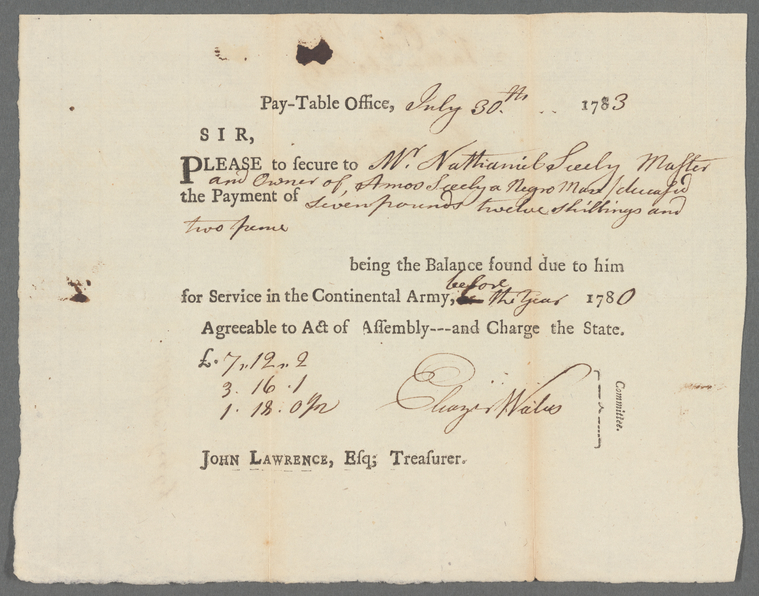 Pay-Table Office, July 30.th .. 1783
SIR,
PLEASE to secure to Mr Nathaniel Seely Master
and Owner of, Amos Seely a Negro Man / deceasd
the Payment of sevenpounds twelve shillings and
two pence
being the Balance found due to him
before
for Service in the Continental Army, the Year 1780
Agreeable to Act of Assembly---and Charge the State.
£.7,,12,,2
3. 16. 1
1. 18. 0½
Eleazer Wales
Committee.
JOHN LAWRENCE, Esq; Treasurer.